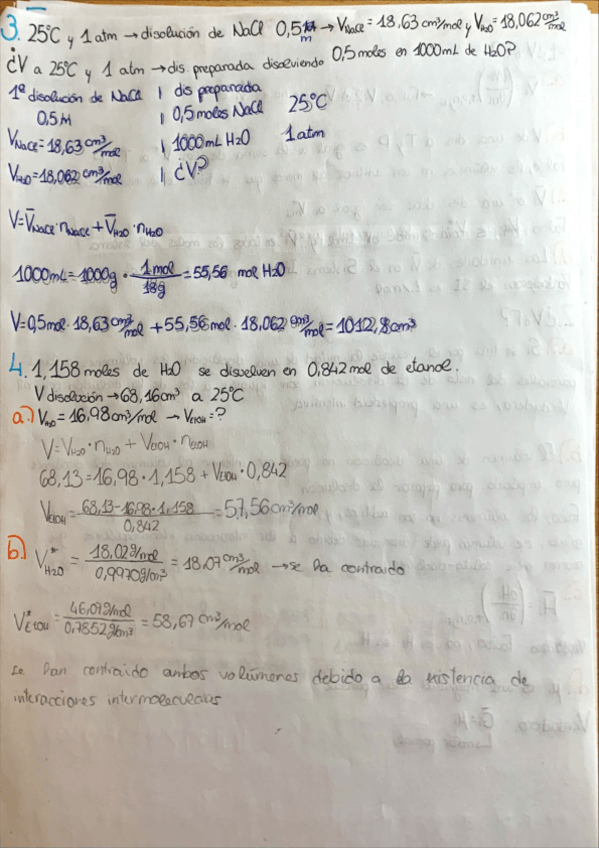 3. 25°C y 1 atm → disolución de NaCl 0,5 m → V̄NaCl = 18,63 cm³/mol y V̄H₂O = 18,062 cm³/mol
¿V a 25°C y 1 atm → dis. preparada disolviendo 0,5 moles en 1000mL de H₂O?
1ª disolución de NaCl | dis preparada
0,5M | 0,5 moles NaCl 25°C
V̄NaCl = 18,63 cm³/mol | 1000mL H₂O 1 atm
V̄H₂O = 18,062 cm³/mol | ¿V?
V = V̄NaCl · nNaCl + V̄H₂O · nH₂O
1000mL = 1000g · 1mol/18g = 55,56 mol H₂O
V = 0,5mol · 18,63 cm³/mol + 55,56 mol · 18,062 cm³/mol = 1012,8cm³
4. 1,158 moles de H₂O se disuelven en 0,842 mol de etanol.
V disolución → 68,16cm³ a 25°C
a.) V̄H₂O = 16,98 cm³/mol → V̄EtOH = ?
V = V̄H₂O · nH₂O + V̄EtOH · nEtOH
68,13 = 16,98 · 1,158 + V̄EtOH · 0,842
V̄EtOH = 68,13 - 16,98 · 1,158 / 0,842 = 57,56 cm³/mol
b.) V*H₂O = 18,02g/mol / 0,9970g/cm³ = 18,07 cm³/mol → se ha contraido
V*EtOH = 46,07g/mol / 0,7852g/cm³ = 58,67 cm³/mol
se han contraido ambos volúmenes debido a la existencia de
interacciones intermoleculares